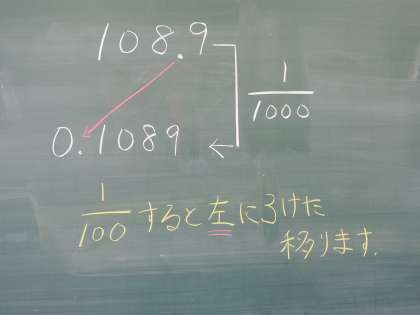 108.9
1/1000
0.1089 ←
1/100 すると左に3けた
移ります.